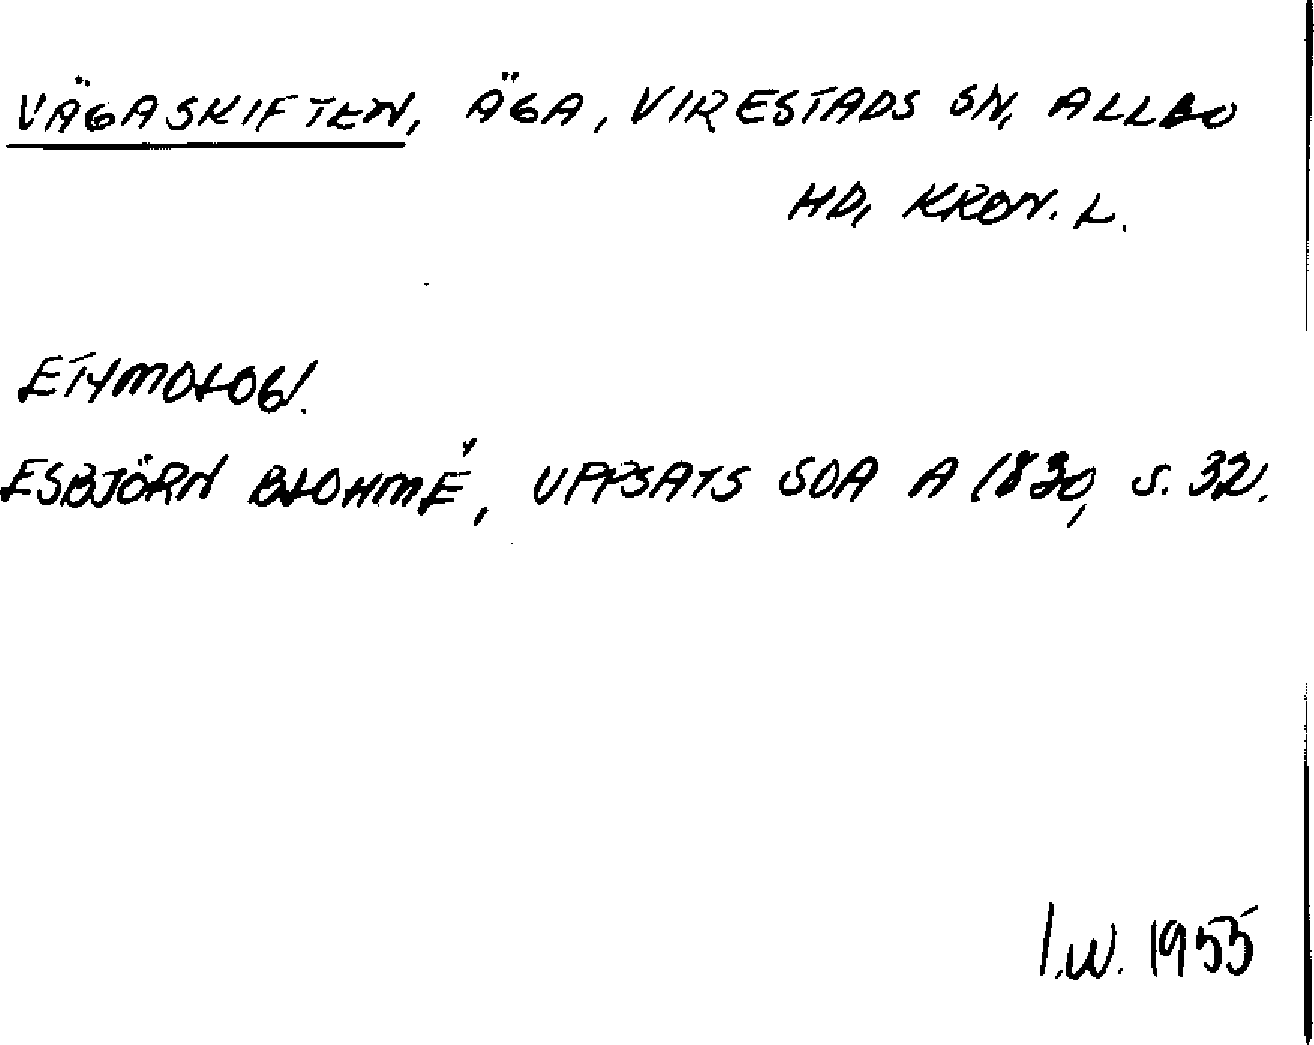 VÄGASKIFTEN, ÄGA, VIRESTADS SN, ALLBO
HD, KRON. L.
ETYMOLOGI.
ESBJÖRN BLOHMÉ, UPPSATS SOA A 1830, S. 32.
I.W. 1955